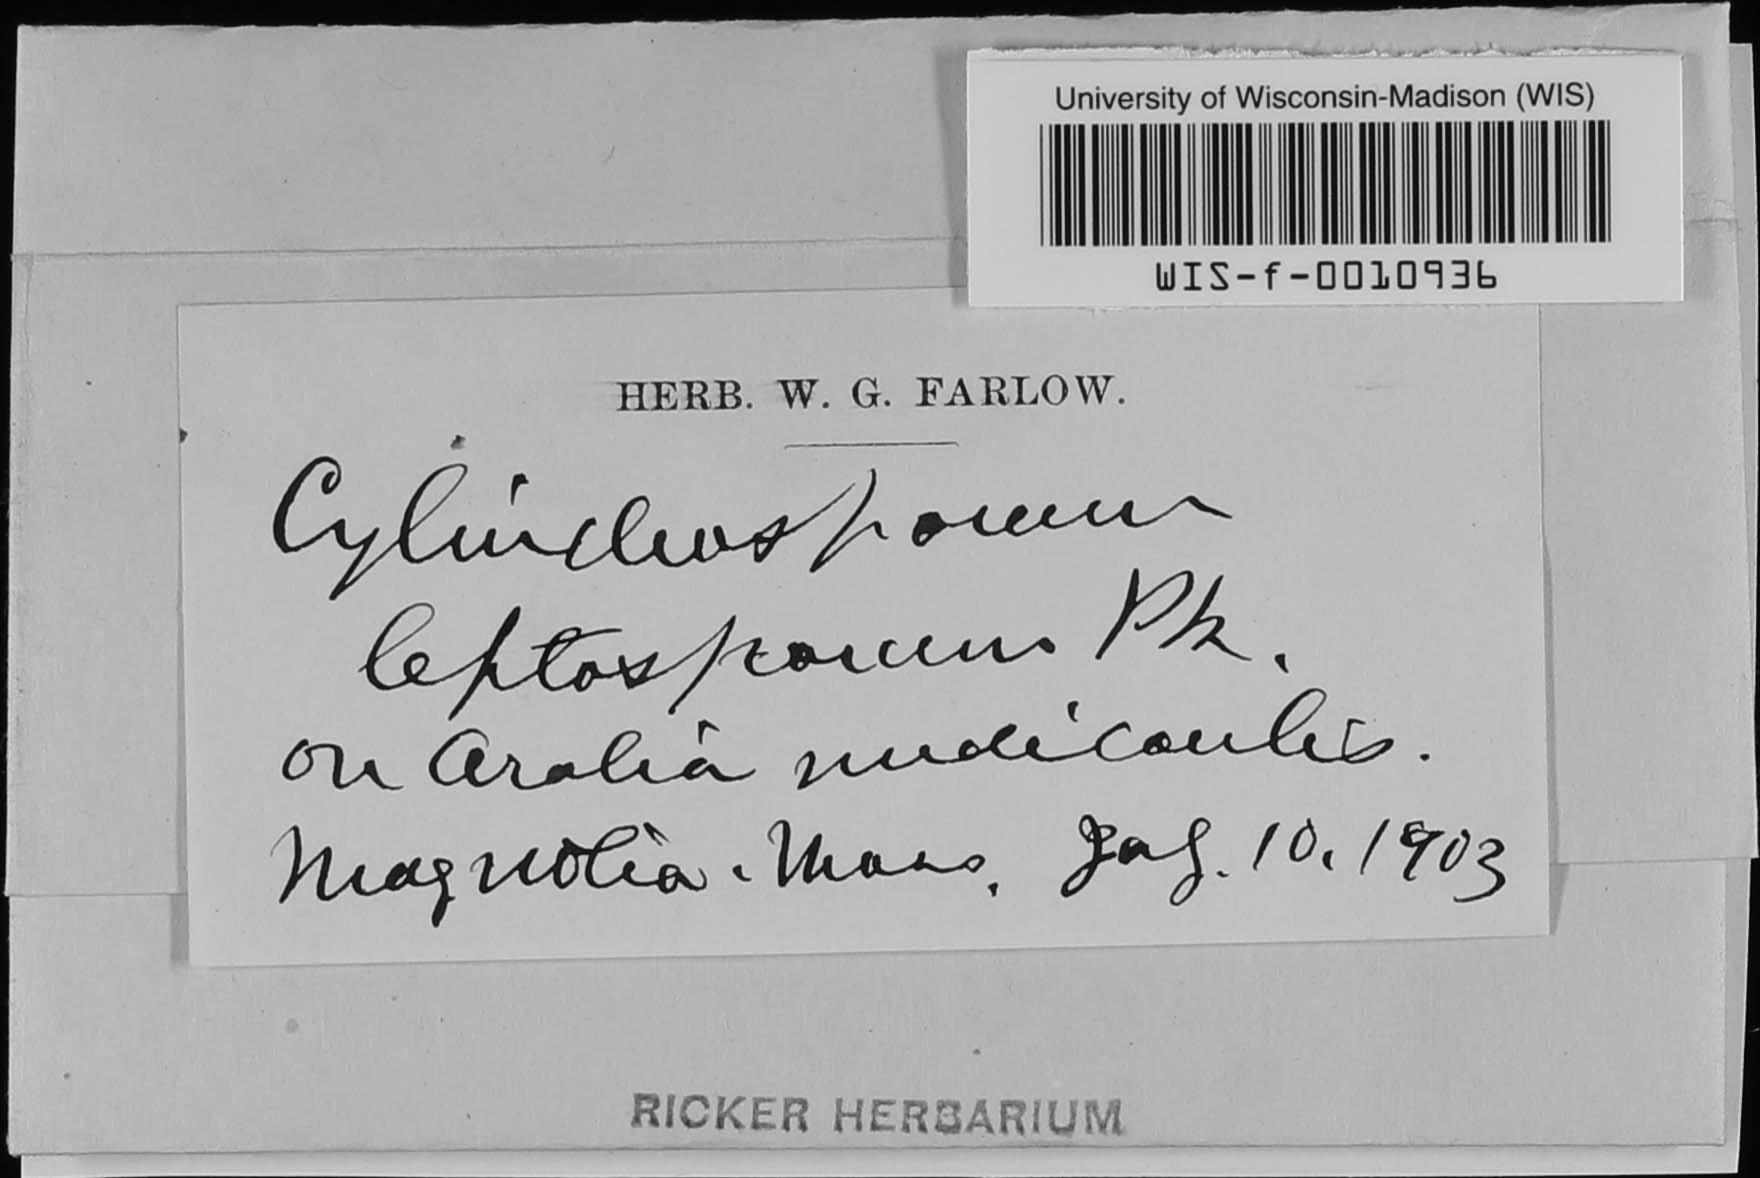 University of Wisconsin-Madison (WIS)
WIS-f-0010936
HERB. W. G. FARLOW.
Cylindrosporum
leptosporum Pk.
on Aralia nudicaulis.
Magnolia. Mass. 10, 1903
RICKER HERBARIUM